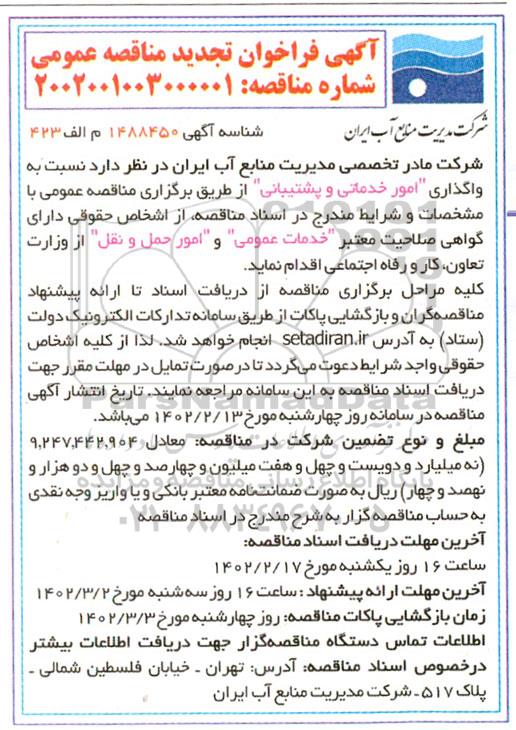 آگهی فراخوان تجدید مناقصه عمومی
شماره مناقصه: ۲۰۰۲۰۰۱۰۰۳۰۰۰۰۰۱
شرکت مدیریت منابع آب ایران
شناسه آگهی ۱۴۸۸۴۵۰ م الف ۴۲۳
شرکت مادر تخصصی مدیریت منابع آب ایران در نظر دارد نسبت به
واگذاری "امور خدماتی و پشتیبانی" از طریق برگزاری مناقصه عمومی با
مشخصات و شرایط مندرج در اسناد مناقصه، از اشخاص حقوقی دارای
گواهی صلاحیت معتبر "خدمات عمومی" و "امور حمل و نقل" از وزارت
تعاون، کار و رفاه اجتماعی اقدام نماید.
کلیه مراحل برگزاری مناقصه از دریافت اسناد تا ارائه پیشنهاد
مناقصه‌گران و بازگشایی پاکات از طریق سامانه تدارکات الکترونیک دولت
(ستاد) به آدرس setadiran.ir انجام خواهد شد. لذا از کلیه اشخاص
حقوقی واجد شرایط دعوت می‌گردد تا در صورت تمایل در مهلت مقرر جهت
دریافت اسناد مناقصه به این سامانه مراجعه نمایند. تاریخ انتشار آگهی
مناقصه در سامانه روز چهارشنبه مورخ ۱۴۰۲/۲/۱۳ می‌باشد.
مبلغ و نوع تضمین شرکت در مناقصه: معادل ۹,۲۴۷,۴۴۲,۹۰۴
(نه میلیارد و دویست و چهل و هفت میلیون و چهارصد و چهل و دو هزار و
نهصد و چهار) ریال به صورت ضمانت‌نامه معتبر بانکی و یا واریز وجه نقدی
به حساب مناقصه گزار به شرح مندرج در اسناد مناقصه
آخرین مهلت دریافت اسناد مناقصه:
ساعت ۱۶ روز یکشنبه مورخ ۱۴۰۲/۲/۱۷
آخرین مهلت ارائه پیشنهاد : ساعت ۱۶ روز سه شنبه مورخ ۱۴۰۲/۳/۲
زمان بازگشایی پاکات مناقصه: روز چهارشنبه مورخ ۱۴۰۲/۳/۳
اطلاعات تماس دستگاه مناقصه‌گزار جهت دریافت اطلاعات بیشتر
درخصوص اسناد مناقصه: آدرس: تهران ـ خیابان فلسطین شمالی ـ
پلاک ۵۱۷ ـ شرکت مدیریت منابع آب ایران
ParsNamadData
پایگاه اطلاع رسانی مناقصه و مزایده
۰۲۱-۸۸۳۴۹۶۷۰-۵